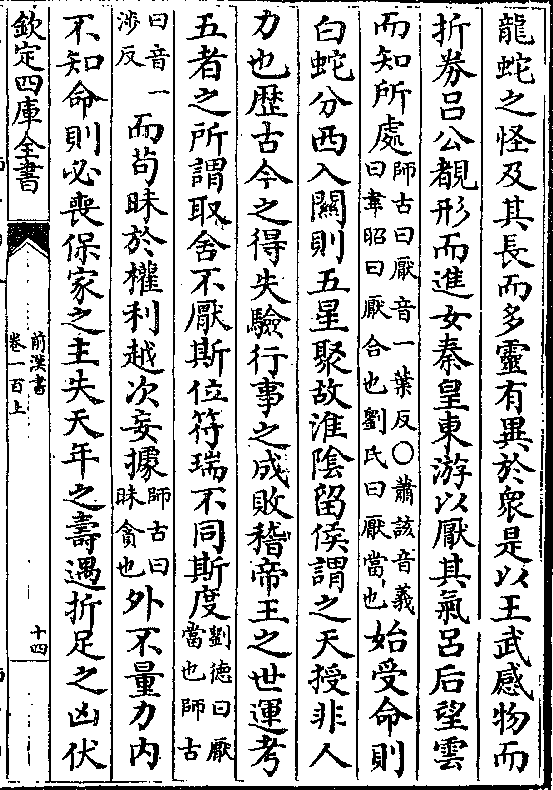 龍蛇之怪及其長而多靈有異於衆是以王武感物而
折劵呂公覩形而進女秦皇東游以厭其氣呂后望雲
而知所處師古曰厭音一葉反〇蕭該音義
曰韋昭曰厭合也劉氏曰厭當也始受命則
白蛇分西入關則五星聚故淮陰留侯謂之天授非人
力也歴古今之得失驗行事之成敗稽帝王之世運考
五者之所謂取舍不厭斯位符瑞不同斯度劉德曰厭
當也師古
曰音一
涉反而茍昧於權利越次妄據師古曰
昧貪也外不量力内
不知命則必喪保家之主失天年之壽遇折足之凶伏
欽定四庫全書
前漢書
卷一百上
十四